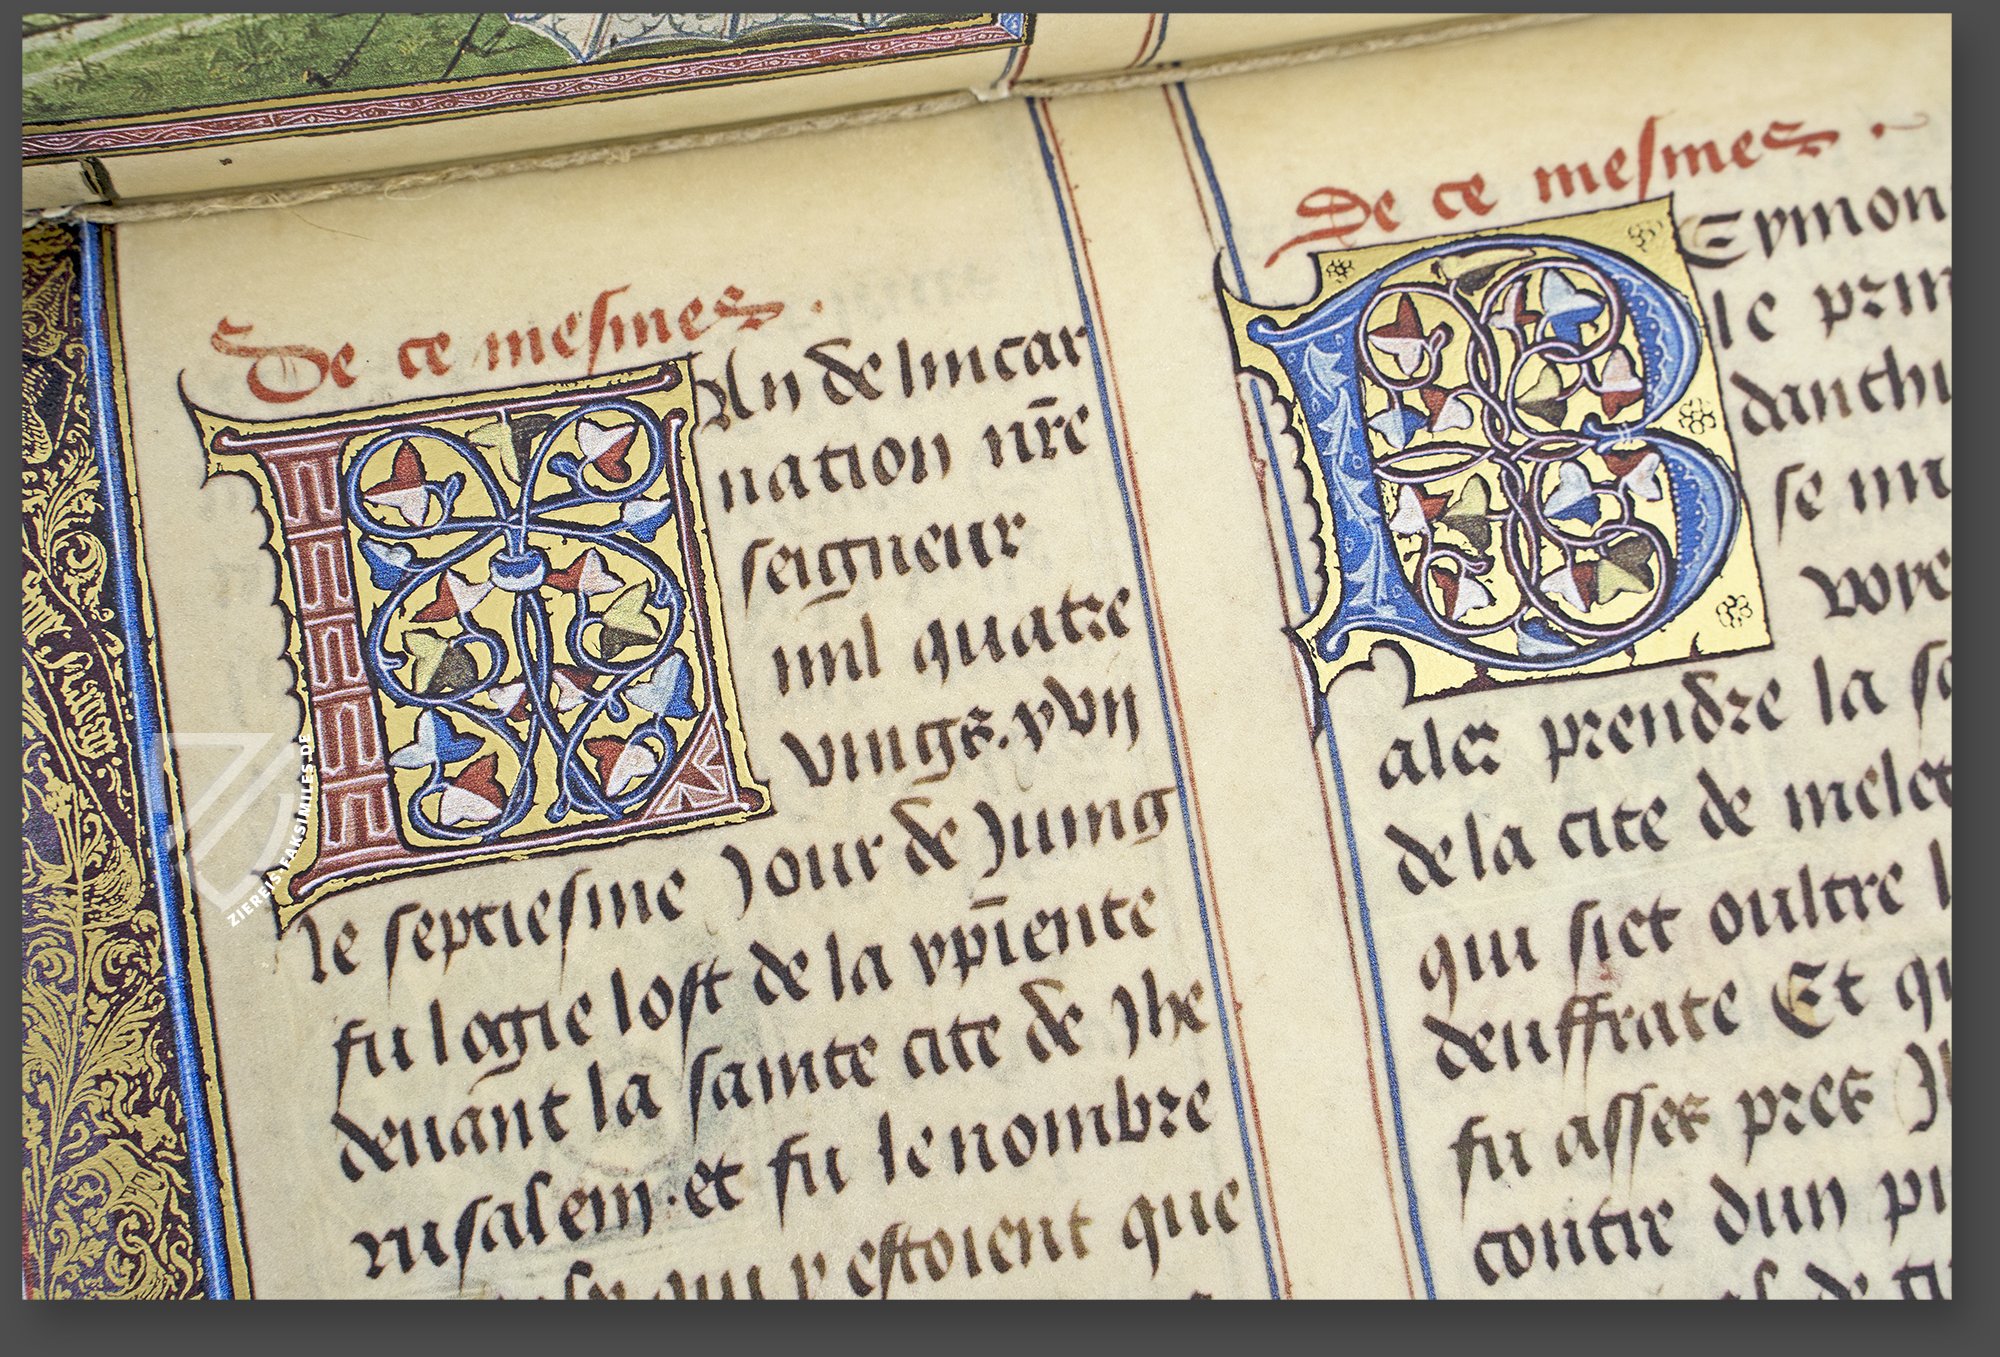 De ce mesmes.
LAn de lincar
nation nr̄e
seigneur
mil quatre
vings. xvij
le septiesme Jour de Juing
fu logie lost de la xp̄iente
deuant la sainte cite de Jhe
rusalem. et fu le nombre
qui y estoient que
De ce mesmes.
BEymon
le prin
danthi
se mi
voye
aler prendre la
de la cite de melet
qui siet oultre l
deuffrate Et q
fu asses pres J
contre dun pi
de ti
ZIEREIS FAKSIMILES.DE